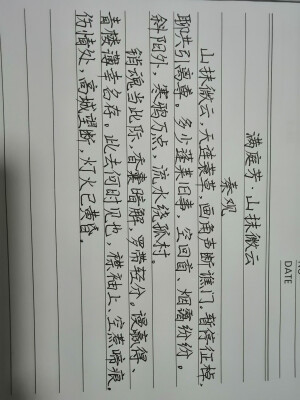 DATE
满庭芳·山抹微云
秦观
山抹微云,天连衰草,画角声断谯门。暂停征棹,
聊共引离尊。多少蓬莱旧事,空回首、烟霭纷纷。
斜阳外,寒鸦万点,流水绕孤村。
销魂当此际,香囊暗解,罗带轻分。谩赢得、
青楼薄幸名存。此去何时见也,襟袖上、空惹啼痕。
伤情处,高城望断,灯火已黄昏。